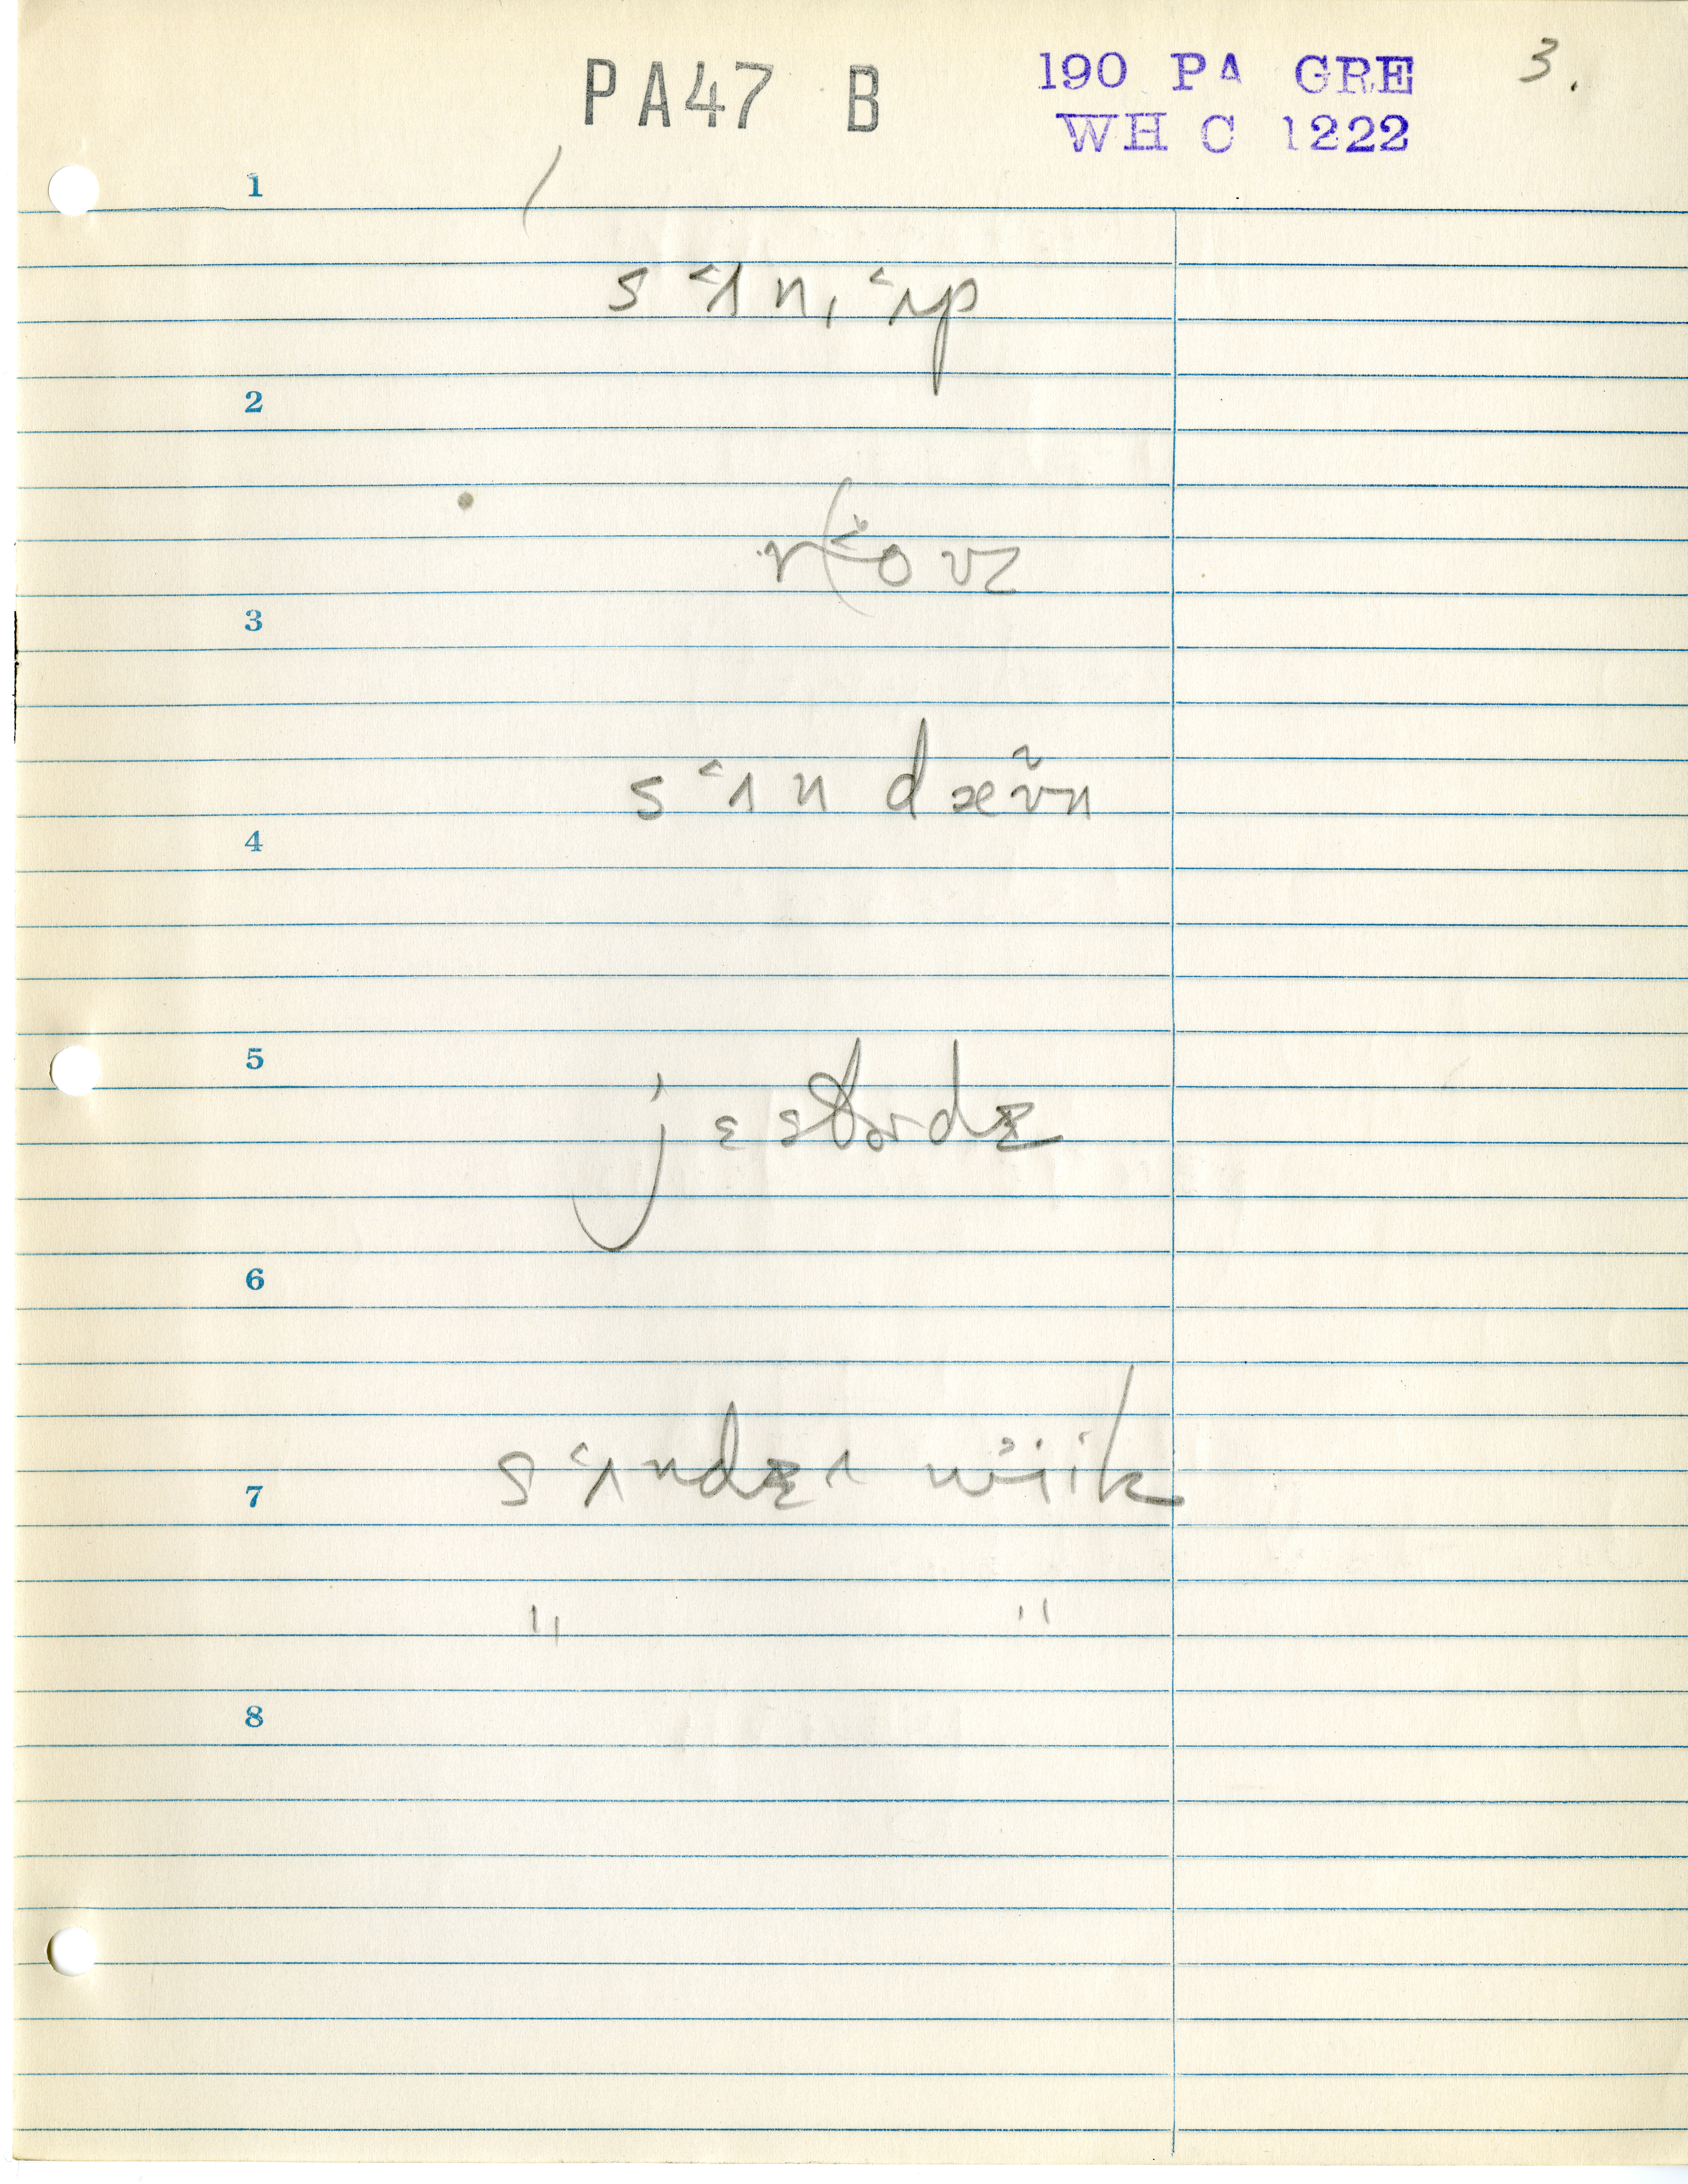 PA47 B
190 PA GRE 3.
WH C 1222
1
s˂ʌn,˂ʌp
2
3
s˂ʌn dæʊ̃n
4
5
jɛstɚdɪ
6
s˂ʌndɪ ʌ wiik
7
" "
8